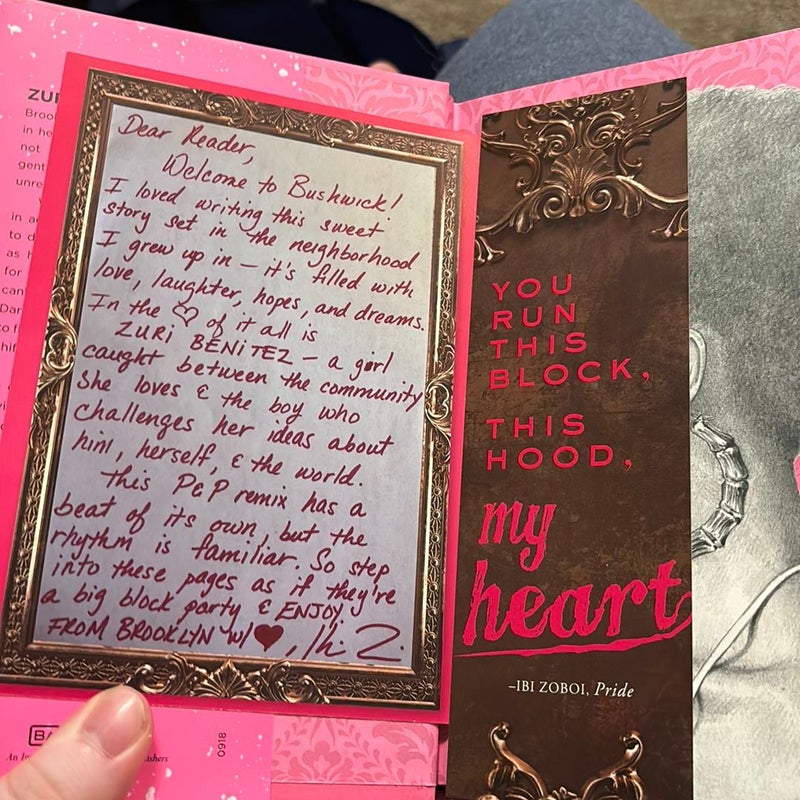 Dear Reader,
Welcome to Bushwick!
I loved writing this sweet
story set in the neighborhood
I grew up in – it's filled with
love, laughter, hopes, and dreams.
In the ♡ of it all is
ZURI BENITEZ – a girl
caught between the community
she loves & the boy who
challenges her ideas about
him, herself, & the world.
This P&P remix has a
beat of its own, but the
rhythm is familiar. So step
into these pages as if they're
a big block party & ENJOY!
FROM BROOKLYN w/ ♥,
YOU
RUN
THIS
BLOCK,
THIS
HOOD,
my
heart
–IBI ZOBOI, Pride
Broo
in he
not
gent
unre
in a
to d
as h
for
can
Dar
to f
hif
0918